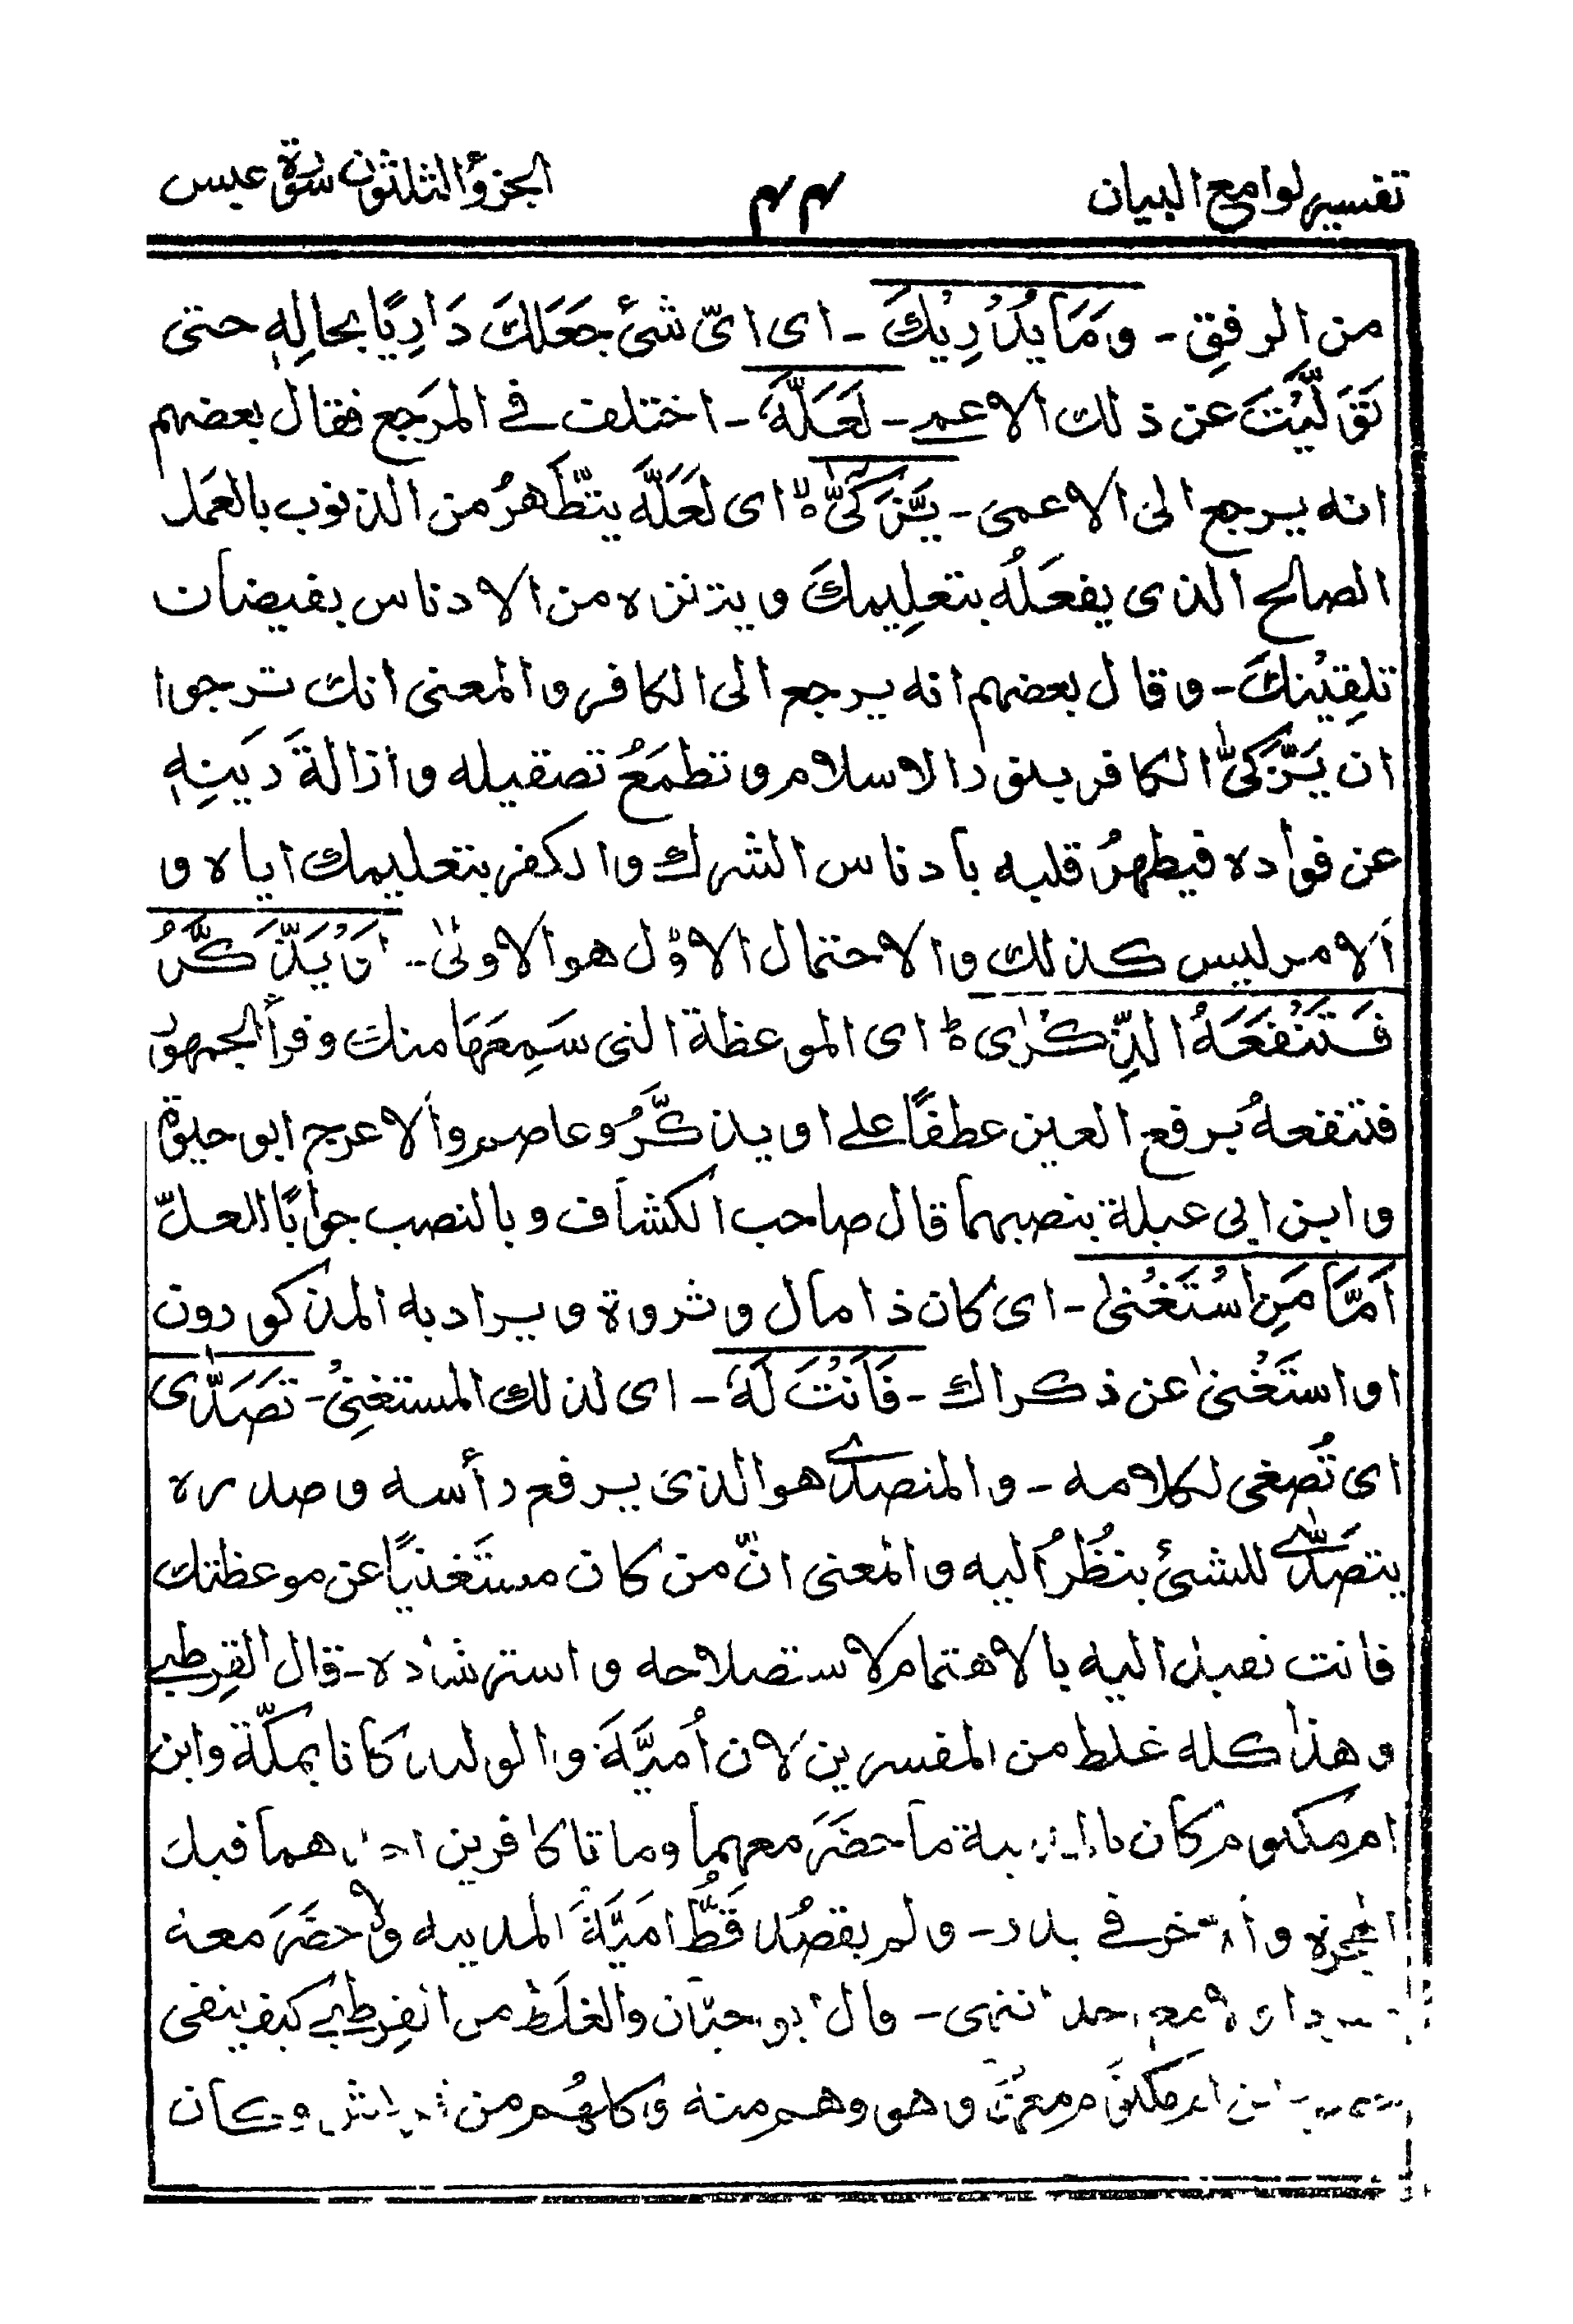 تفسير لوامع البيان ۴۴ الجزؤ الثلثون سورة عبس
من الرفقِ - وَمَا يُدْرِيْكَ - اى اىّ شئ جَعَلَكَ دَارِيًا بحالِهٖ حتى
تَوَلَّيْتَ عن ذلك الاعمے - لَعَلَّهٗ - اختلف فے المرَجع فقال بعضهم
انه يرجع الى الاعمىٰ - يَزَّكّٰىّ ۙ اى لعَلَّه يتطَّهرُ من الذنوب بالعَمل
الصالح الذى يفعَلُه بتعلِيمكَ و يتنزه من الادناس بفيضات
تلقِيْنكَ - وقال بعضهم انه يرجع الى الكافر و المعنى انك ترجوا
ان يَزَّكىّٰ الكافر بنور الاسلام و تطمَعُ تصقيله و ازالةَ دَيَنِهٖ
عن فواده فيطهرُ قلبه بادناس الشرك و الكفر بتعليمك اياه و
الامر ليس كذلك والاحتمال الاوّل هو الاولىٰ - اَوْ يَذَّكَّرُ
فَتَنْفَعَهُ الذِّكْرٰى ؕ اى الموعظة التى سَمِعَهَا منك وقرأ الجمهور
فتنفعهُ برفع العين عطفًا علے او يذكَّرُ و عاصم والاعرج ابو حيوة
و ابن ابى عبلة بنصبهما قال صاحب الكشاف و بالنصب جوابًا لعلّ
اَمَّا مَنِ اسْتَغْنىٰ - اى كان ذا مال و ثروة و يراد به المذكورون
او استَغْنىٰ عن ذكراك - فَاَنْتَ لَهٗ - اى لذلك المستغنِىْ - تَصَدّٰى
اى تُصغى لكلامه - و المتصدّے هو الذى يرفع رأسه و صدره
يتصَدّٰے للشئ ينظُرُ اليه و المعنى انّ من كان مستَغنيًا عن موعظتك
فانت تميل اليه بالاهتمام لاستصلاحه و استرشاده - قال القرطبے
و هذا كله غلط من المفسرين لان اُميَّةَ و الوليد كانا بمكّة وابن
ام مكتوم كان ما حضَرَ معهما وماتا كافرين هما قبل
الهجرة و الاخر فے بدر - و لم يقصُد قَطُّ اميَّةَ المدينه ولا حضَرَ معه
احد انتهى - قال ابو حيّان والغلَط من القرطبے كيف ينفى
و هو وهم منه و كلهُم من قريش وكان